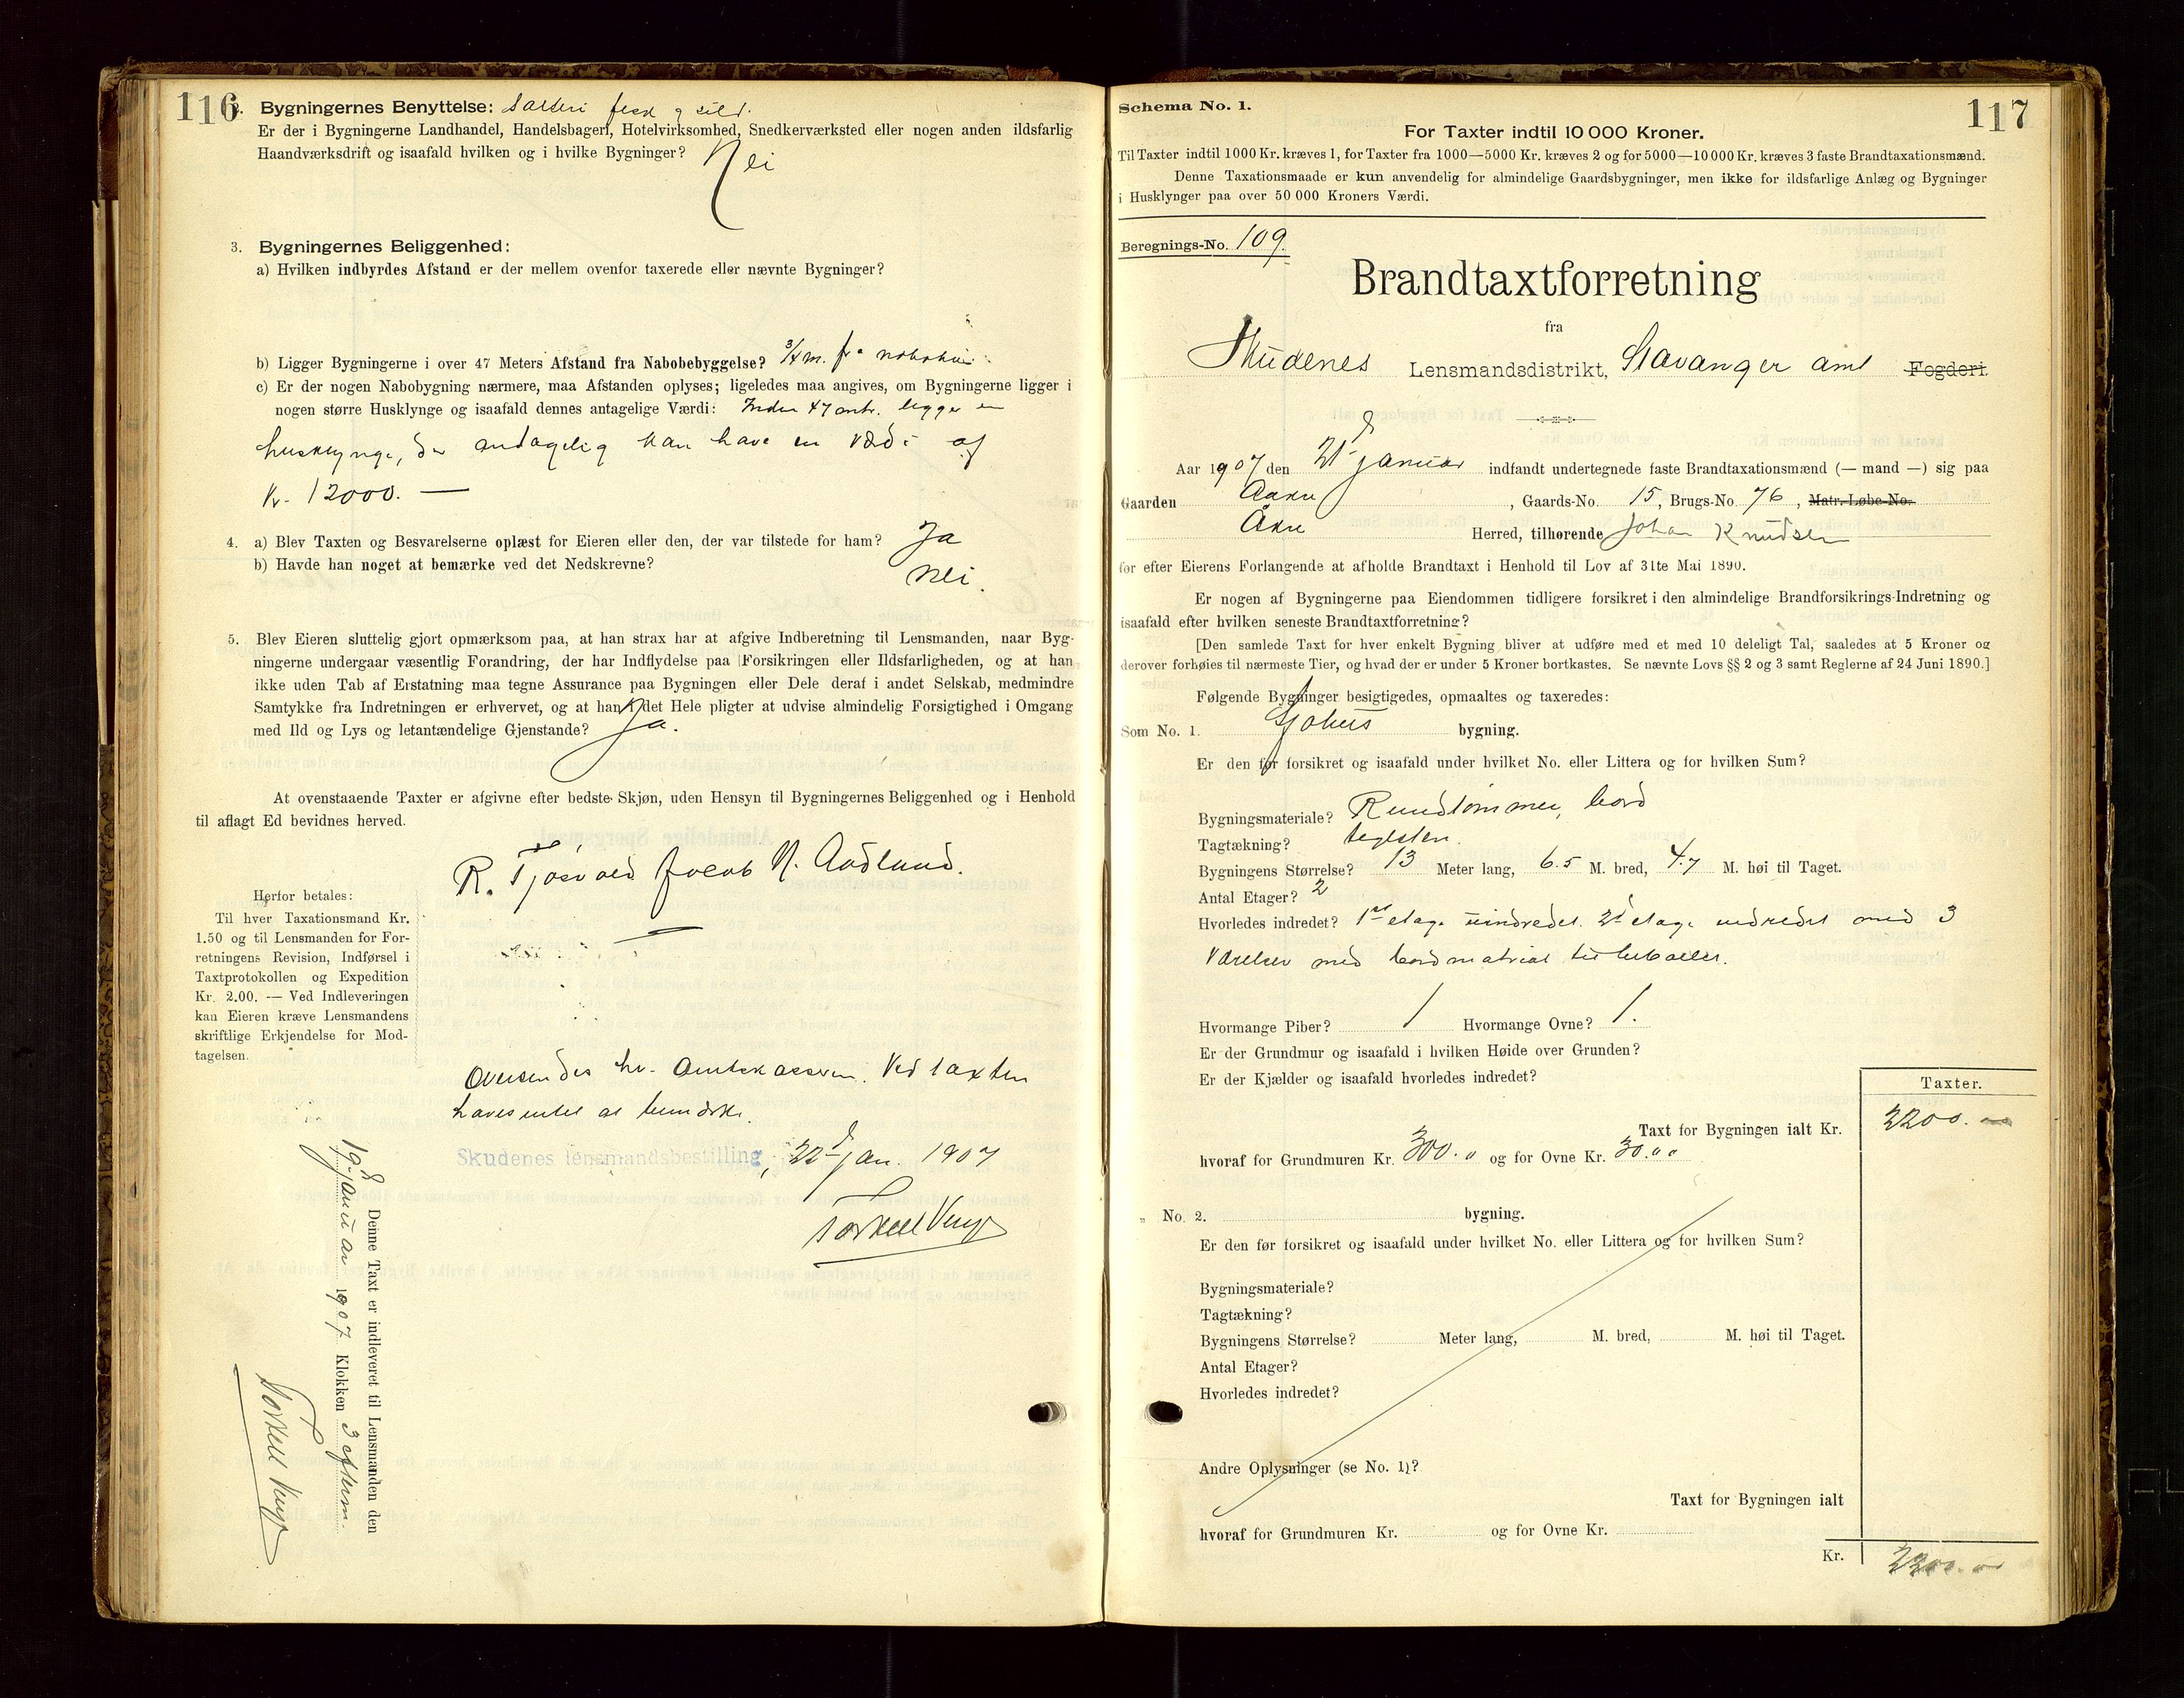 116
2. Bygningernes Benyttelse: Salteri fisk og sild.
Er der i Bygningerne Landhandel, Handelsbageri, Hotelvirksomhed, Snedkerværksted eller nogen anden ildsfarlig
Haandværksdrift og isaafald hvilken og i hvilke Bygninger? Nei
3. Bygningernes Beliggenhed:
a) Hvilken indbyrdes Afstand er der mellem ovenfor taxerede eller nævnte Bygninger?
b) Ligger Bygningerne i over 47 Meters Afstand fra Nabobebyggelse? 3/4 m. fra nabohus.
c) Er der nogen Nabobygning nærmere, maa Afstanden oplyses; ligeledes maa angives, om Bygningerne ligger i
nogen større Husklynge og isaafald dennes antagelige Værdi: Inden 47 mtr. ligger en
husklynge, der andagelig kan have en værdi af
Kr. 12000. —
4. a) Blev Taxten og Besvarelserne oplæst for Eieren eller den, der var tilstede for ham? Ja
b) Havde han noget at bemærke ved det Nedskrevne? Nei.
5. Blev Eieren sluttelig gjort opmærksom paa, at han strax har at afgive Indberetning til Lensmanden, naar Byg-
ningerne undergaar væsentlig Forandring, der har Indflydelse paa Forsikringen eller Ildsfarligheden, og at han
ikke uden Tab af Erstatning maa tegne Assurance paa Bygningen eller Dele deraf i andet Selskab, medmindre
Samtykke fra Indretningen er erhvervet, og at han i det Hele pligter at udvise almindelig Forsigtighed i Omgang
med Ild og Lys og letantændelige Gjenstande? Ja.
At ovenstaaende Taxter er afgivne efter bedste Skjøn, uden Hensyn til Bygningernes Beliggenhed og i Henhold
til aflagt Ed bevidnes herved.
R. Tjøsvold Jacob N. Aadland.
Herfor betales:
Til hver Taxationsmand Kr.
1.50 og til Lensmanden for For-
retningens Revision, Indførsel i
Taxtprotokollen og Expedition
Kr. 2.00. — Ved Indleveringen
kan Eieren kræve Lensmandens
skriftlige Erkjendelse for Mod-
tagelsen.
Oversendes hr. Amtskasseren. Ved taxten
haves intet at bemærke.
Skudenes lensmandsbestilling, 22d Jan. 1907
Torkell Vinje
Denne Taxt er indleveret til Lensmanden den
19d januar 1907 Klokken 3 efterm.
Torkell Vinje
Schema No. 1.
117
For Taxter indtil 10 000 Kroner.
Til Taxter indtil 1000 Kr. kræves 1, for Taxter fra 1000—5000 Kr. kræves 2 og for 5000—10 000 Kr. kræves 3 faste Brandtaxationsmænd.
Denne Taxationsmaade er kun anvendelig for almindelige Gaardsbygninger, men ikke for ildsfarlige Anlæg og Bygninger
i Husklynger paa over 50 000 Kroners Værdi.
Beregnings-No. 109.
Brandtaxtforretning
fra
Skudenes Lensmandsdistrikt, Stavanger amt Fogderi.
Aar 1907 den 21d januar indfandt undertegnede faste Brandtaxationsmænd (— mand —) sig paa
Gaarden Aakre, Gaards-No. 15, Brugs-No. 76, Matr.-Løbe-No.
Åkre Herred, tilhørende Johan Knudsen
for efter Eierens Forlangende at afholde Brandtaxt i Henhold til Lov af 31te Mai 1890.
Er nogen af Bygningerne paa Eiendommen tidligere forsikret i den almindelige Brandforsikrings-Indretning og
isaafald efter hvilken seneste Brandtaxtforretning?
[Den samlede Taxt for hver enkelt Bygning bliver at udføre med et med 10 deleligt Tal, saaledes at 5 Kroner og
derover forhøies til nærmeste Tier, og hvad der er under 5 Kroner bortkastes. Se nævnte Lovs §§ 2 og 3 samt Reglerne af 24 Juni 1890.]
Følgende Bygninger besigtigedes, opmaaltes og taxeredes:
Som No. 1. Sjøhus bygning.
Er den før forsikret og isaafald under hvilket No. eller Littera og for hvilken Sum?
Bygningsmateriale? Rundtømmer, bord
Tagtækning? teglsten.
Bygningens Størrelse? 13 Meter lang, 6.5 M. bred, 4.7 M. høi til Taget.
Antal Etager? 2
Hvorledes indredet? 1ste etage uindredet. 2d etage indredet med 3
Værelser med bordmatrial
Hvormange Piber? 1 Hvormange Ovne? 1.
Er der Grundmur og isaafald i hvilken Høide over Grunden?
Er der Kjælder og isaafald hvorledes indredet?
Taxter.
Taxt for Bygningen ialt Kr. 2200.
hvoraf for Grundmuren Kr. 300. og for Ovne Kr. 30.00
" No. 2. bygning.
Er den før forsikret og isaafald under hvilket No. eller Littera og for hvilken Sum?
Bygningsmateriale?
Tagtækning?
Bygningens Størrelse? Meter lang, M. bred, M. høi til Taget.
Antal Etager?
Hvorledes indredet?
Andre Oplysninger (se No. 1)?
Taxt for Bygningen ialt
hvoraf for Grundmuren Kr. og for Ovne Kr.
Kr. 2200.